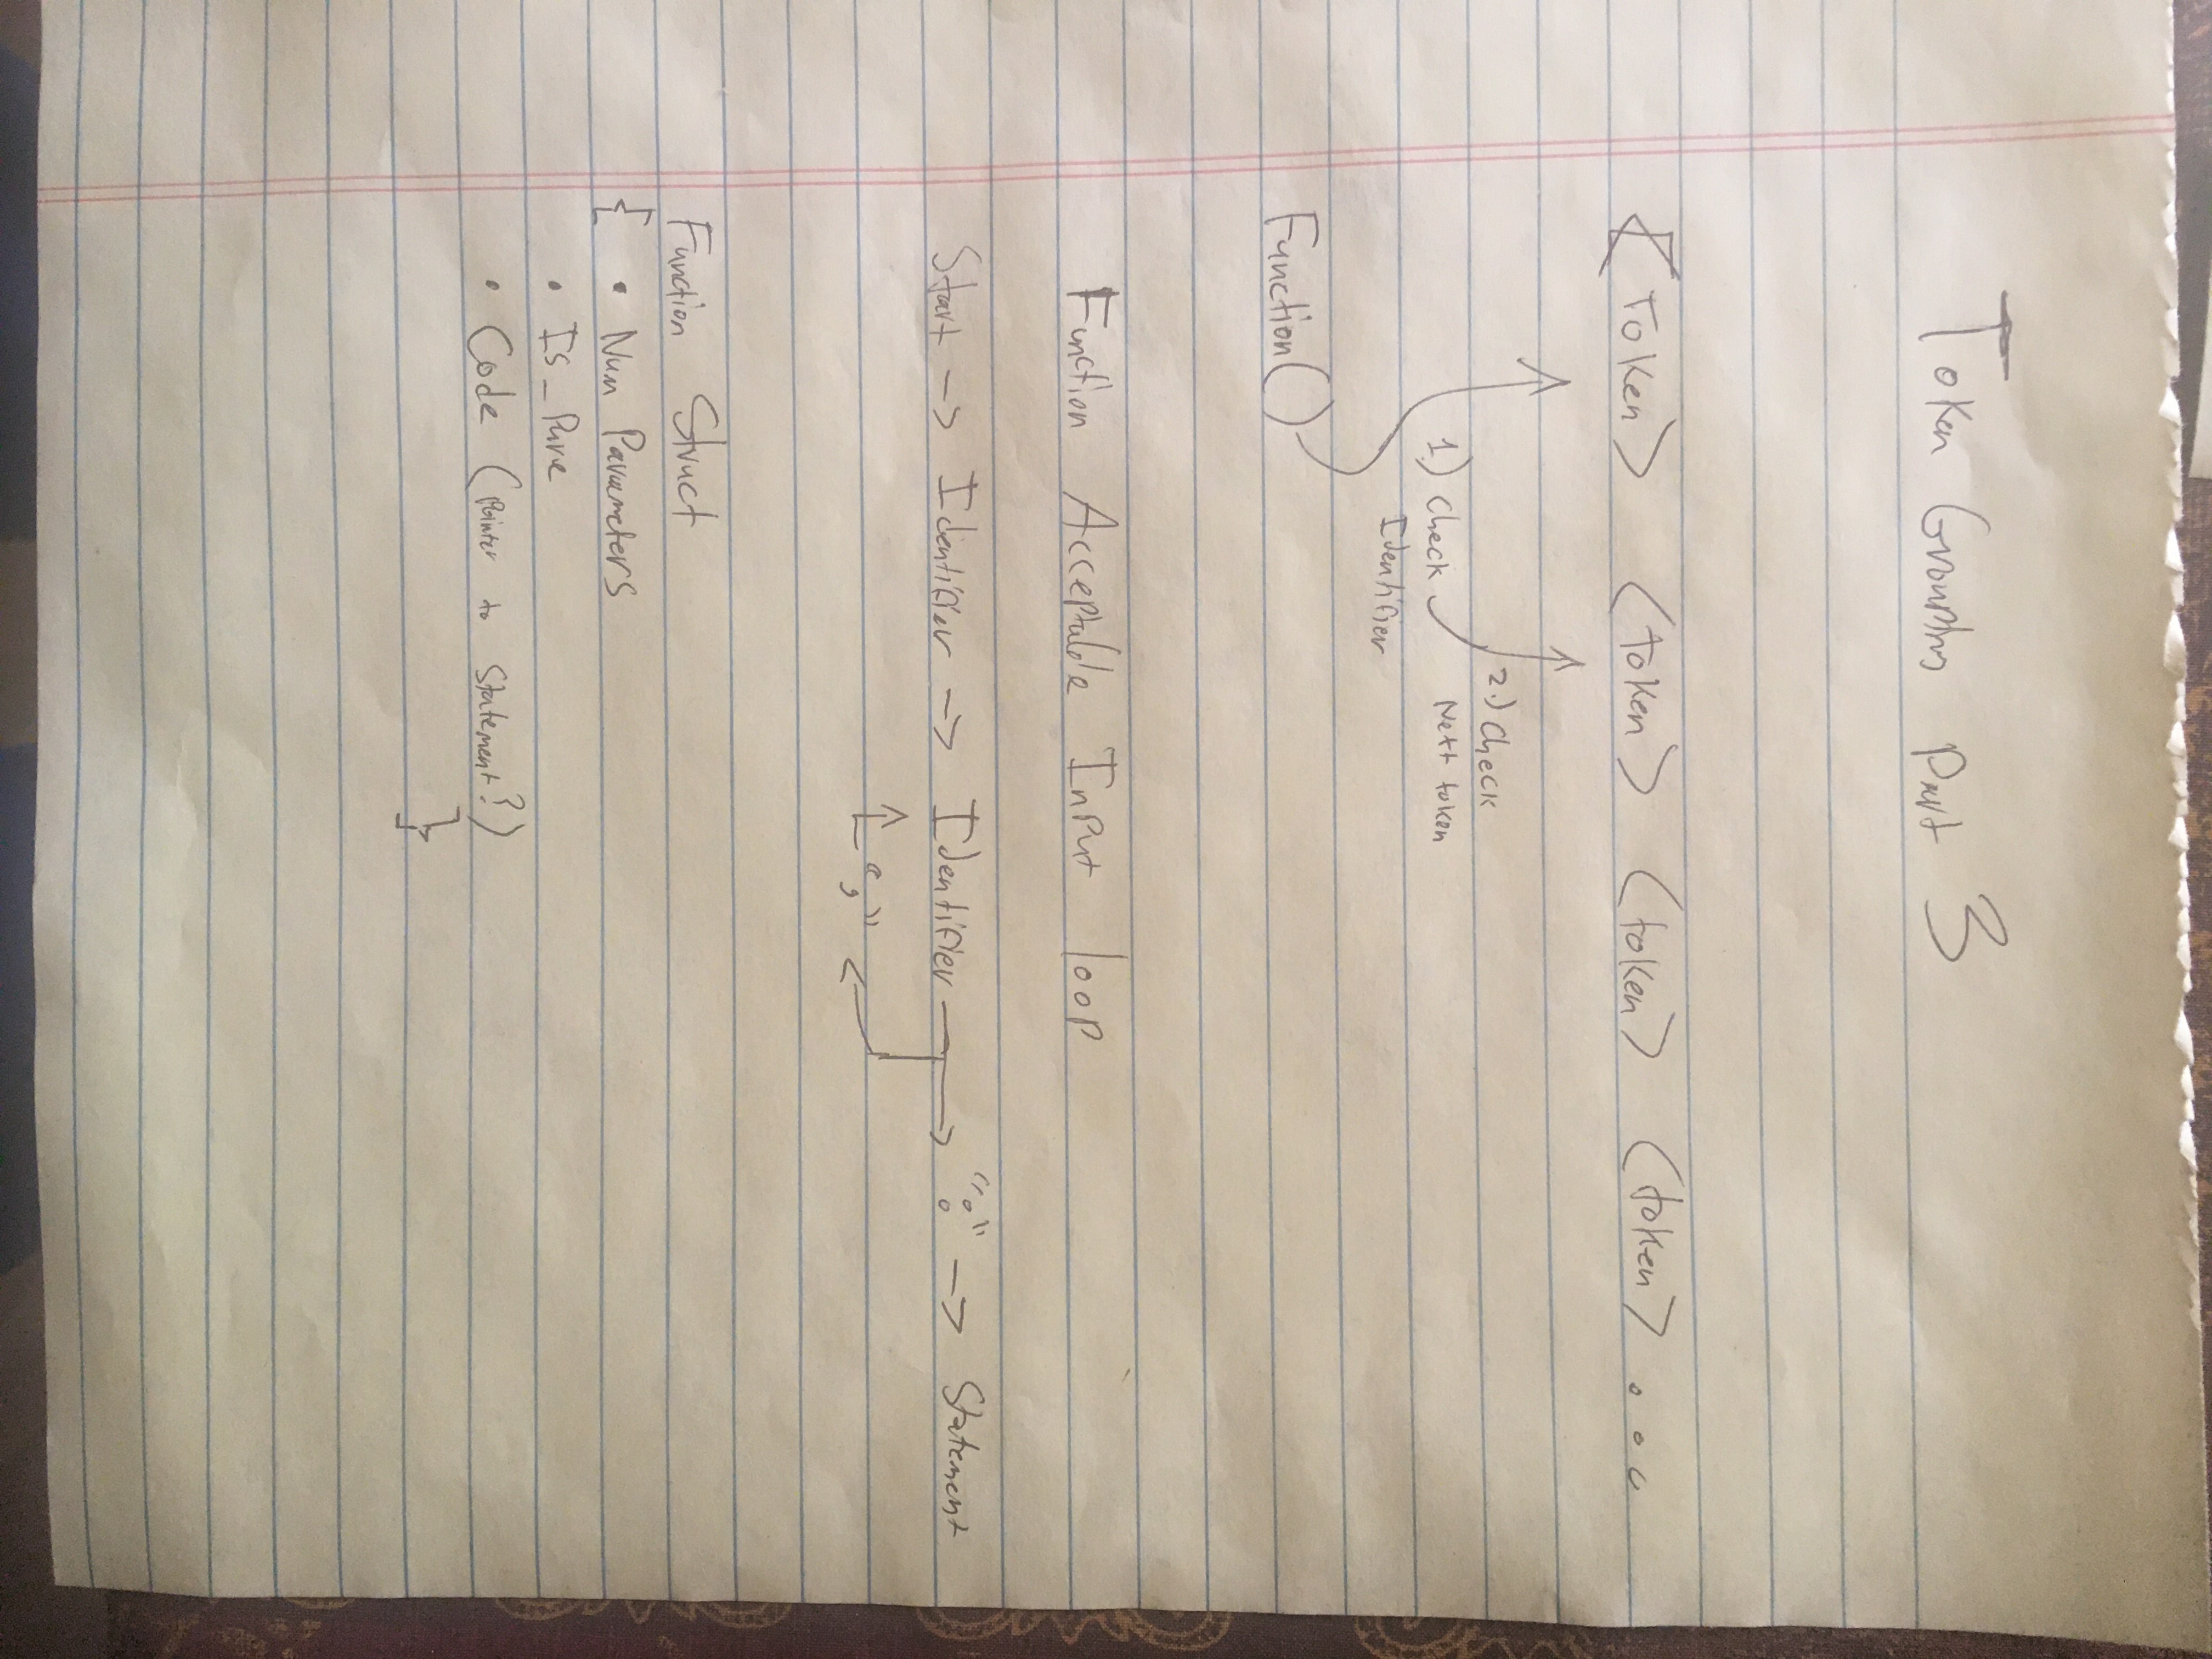 Token Grouping Part 3
<Token> <token> <token> <token> ...
1.) Check Identifier
2.) Check Next token
Function()
Function Acceptable Input loop
Start -> Identifier -> Identifier -> ":" -> Statement
","
Function Struct
{ • Num Parameters
• Is_Pure
• Code (Pointer to Statement?)
}